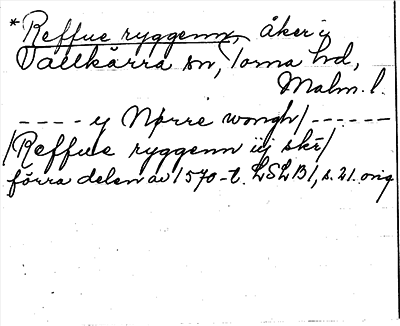 *Reffue ryggenn, åker i
Vallkärra sn, Torna hd,
Malm. l.
---- y Nørre wongh/------
/Reffues ryggenn iij skr/
förra delen av 1570-t. LSLB1, s. 21. orig